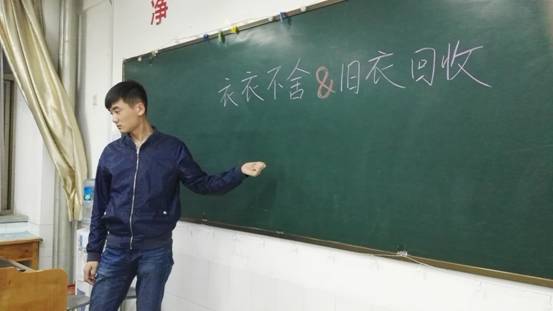 净
衣衣不舍&旧衣回收